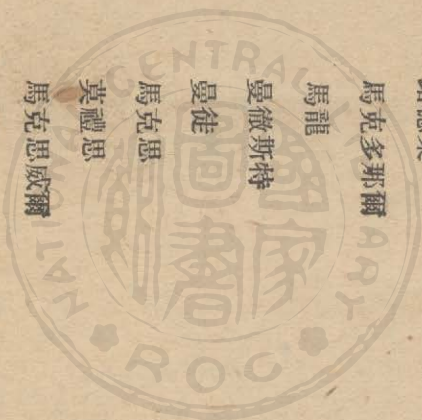 馬克多那爾
馬龍
曼徹斯特
曼徒
馬克思
莫禮思
馬克思威爾
NATIONAL CENTRAL LIBRARY
國家圖書館
ROC